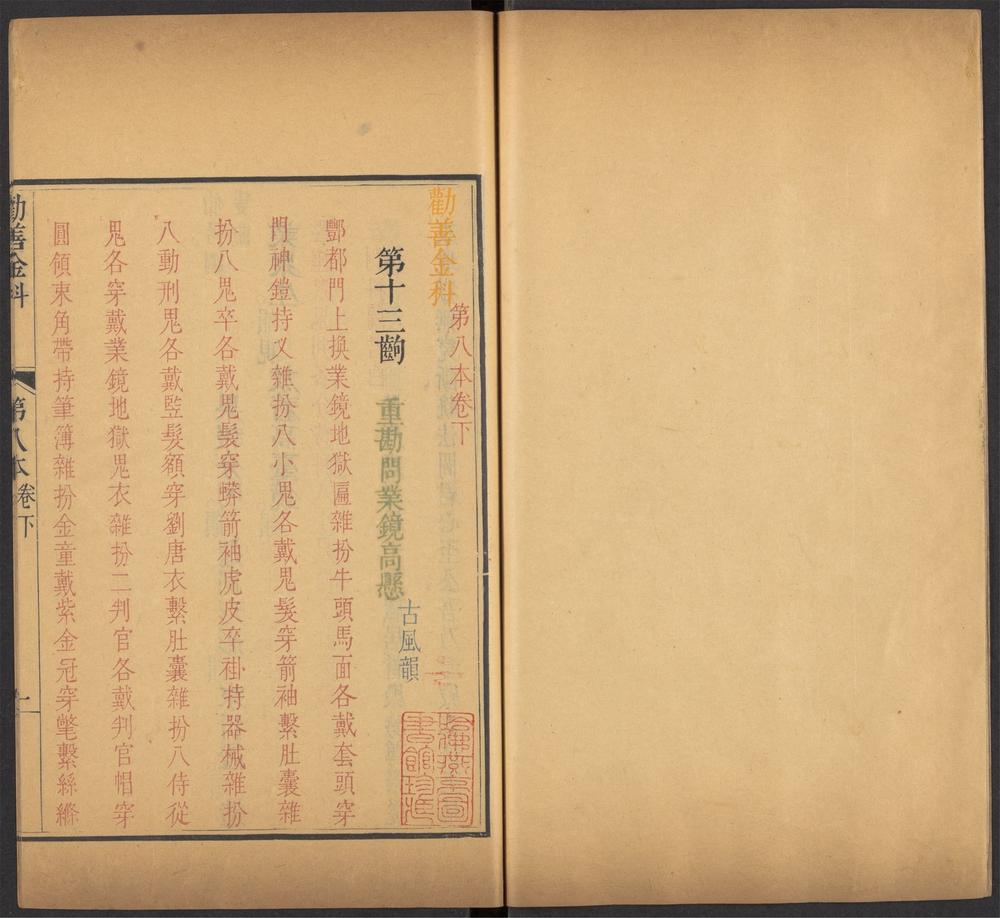 勸善金科
第八本卷下
第十三齣
重勘問業鏡高懸
古風韻
哈佛燕京圖書館珍藏
酆都門上換業鏡地獄匾雜扮牛頭馬面各戴套頭穿
門神鎧持叉雜扮八小鬼各戴鬼髮穿箭袖繫肚囊雜
扮八鬼卒各戴鬼髮穿蟒箭袖虎皮卒褂持器械雜扮
八動刑鬼各戴竪髮額穿劉唐衣繫肚囊雜扮八侍從
鬼各穿戴業鏡地獄鬼衣雜扮二判官各戴判官帽穿
圓領束角帶持筆簿雜扮金童戴紫金冠穿氅繫絲縧
勸善金科
第八本卷下
一